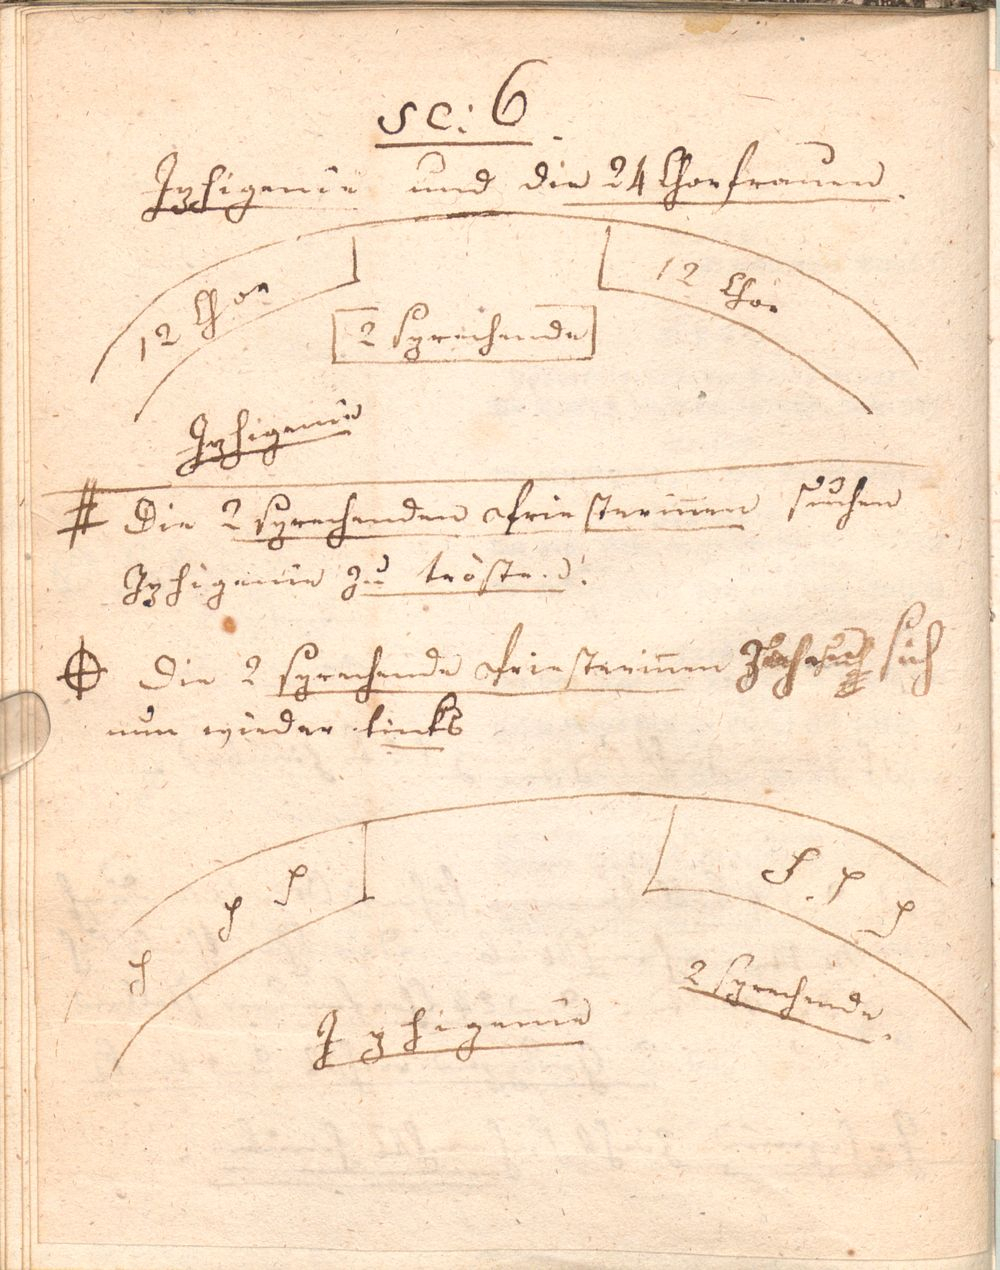 sc: 6.
Iphigenie und die 24 Chorfrauen.
12 Chor
12 Chor
2 Sprechende
Iphigenie
# Die 2 sprechenden Priesterinnen suchen
Iphigenie zu trösten.
Die 2 sprechende Priesterinnen sich
nun wieder links
2 Sprechende.
Iphigenie